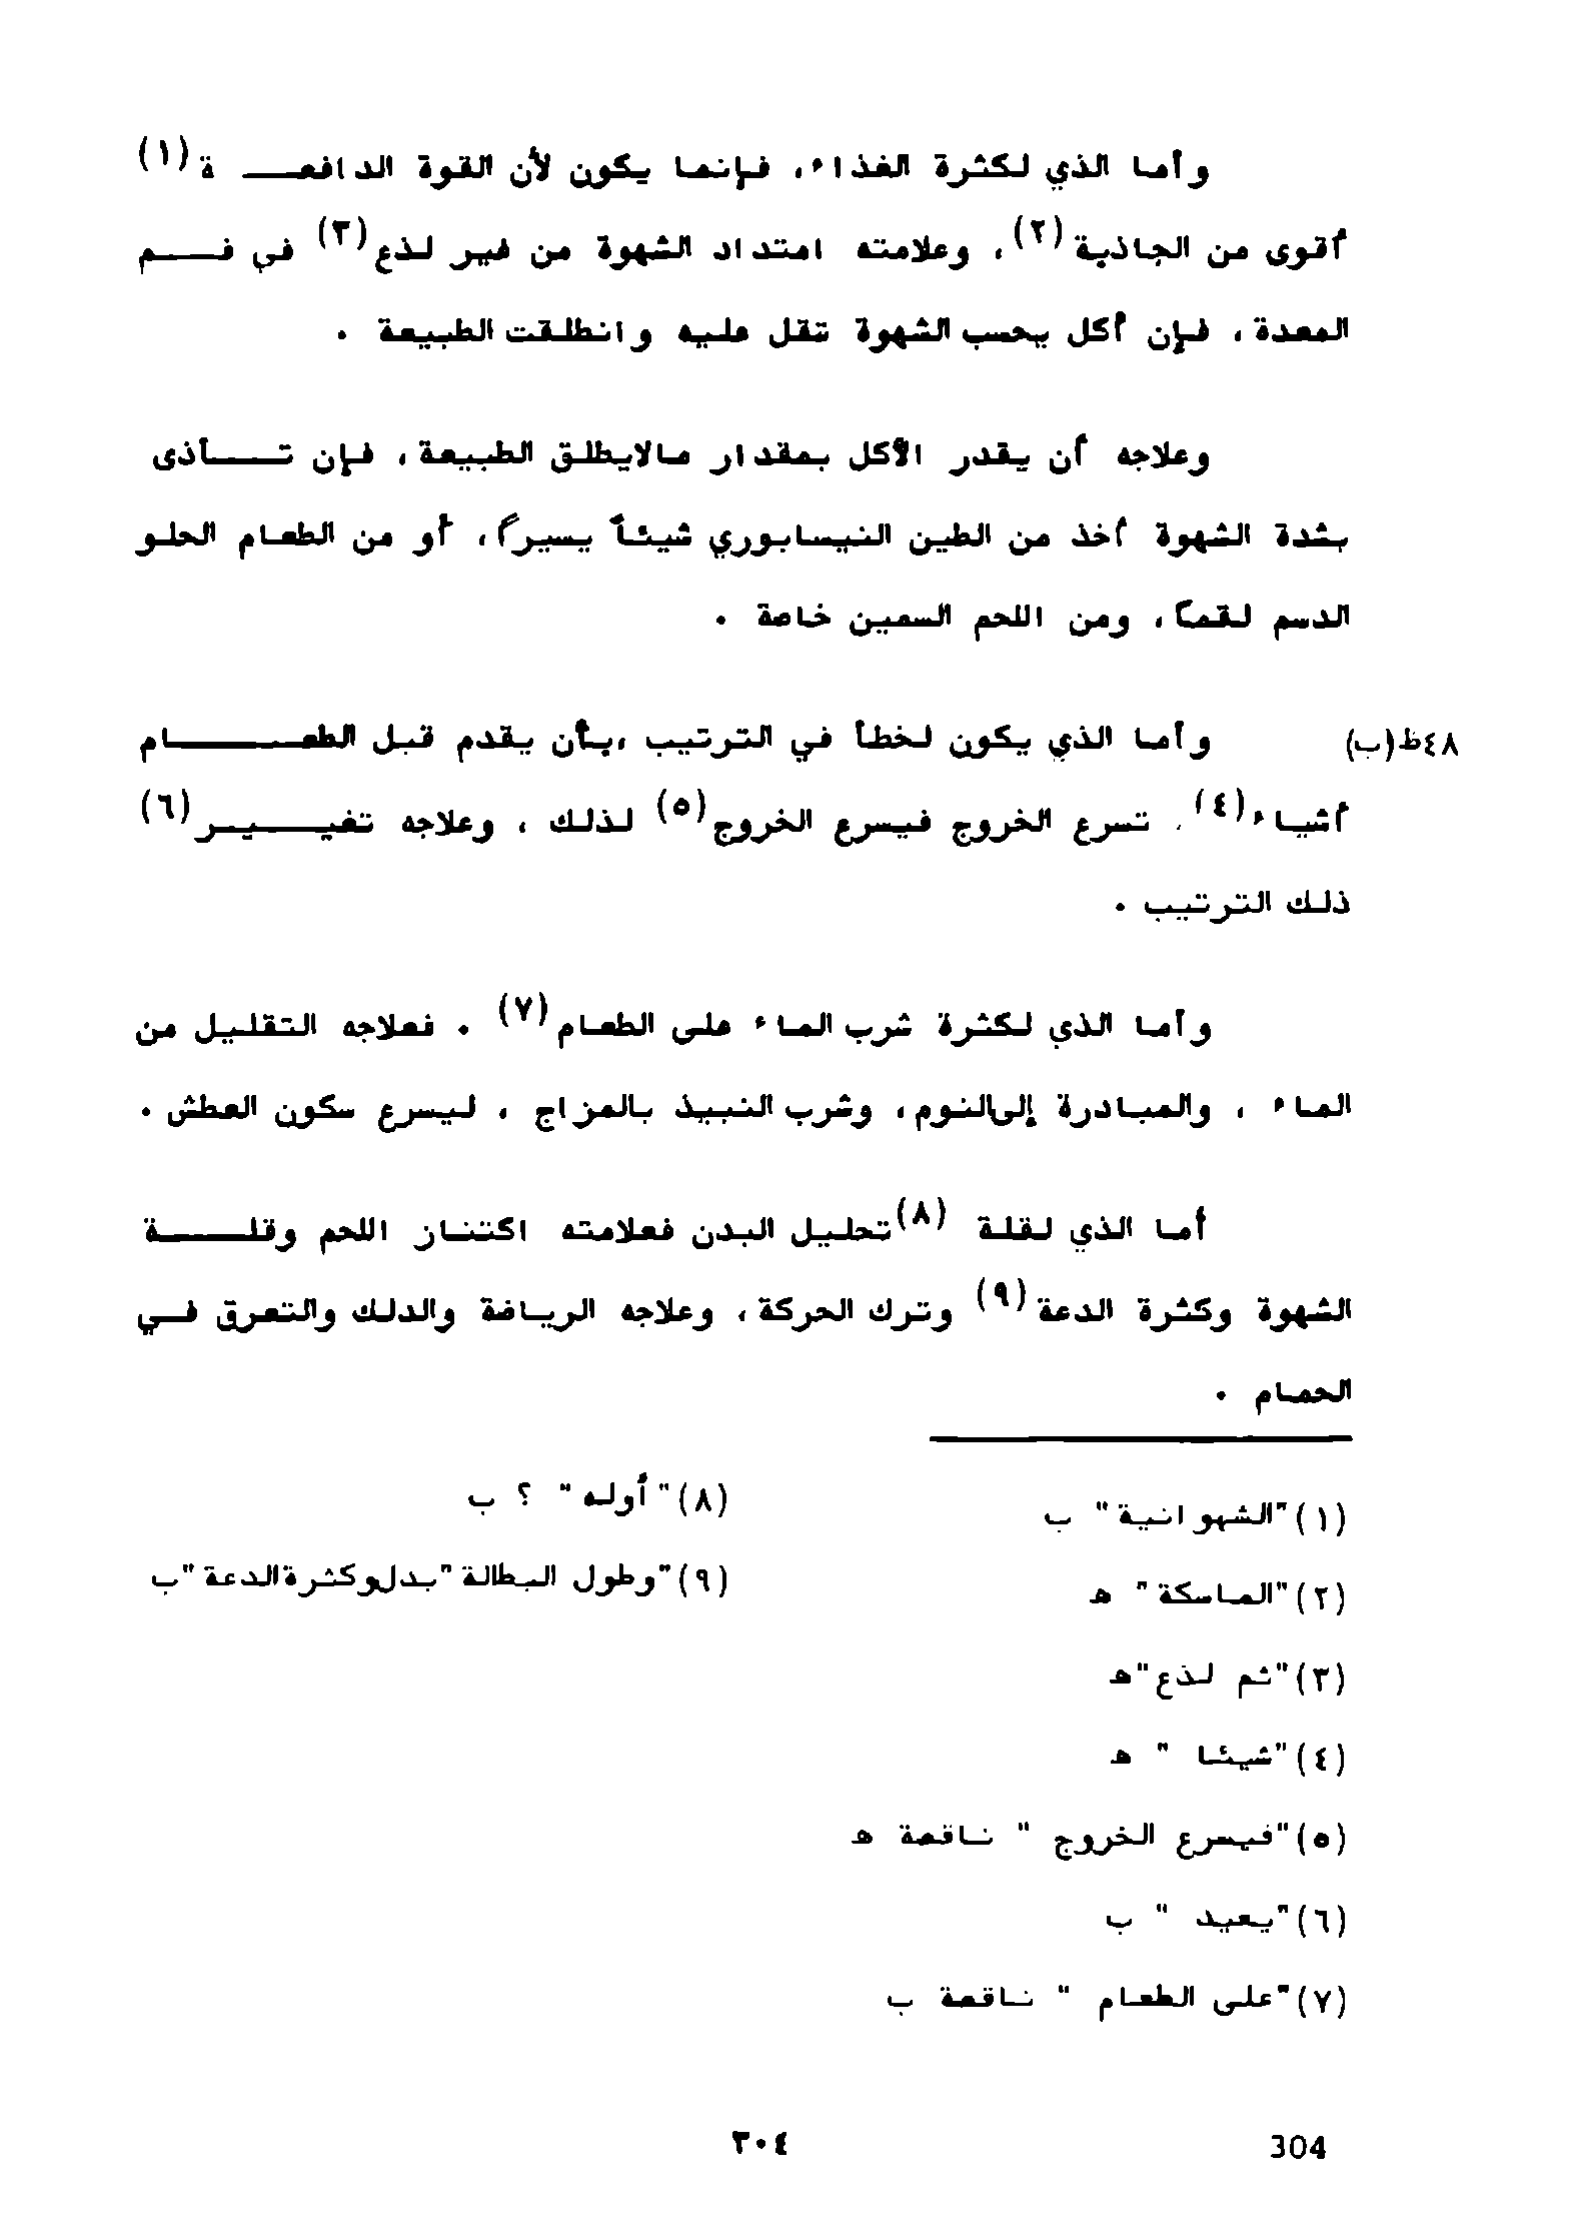 وأما الذي لكثرة الغذاء، فإنما يكون لأن القوة الدافعة(١)
أقوى من الجاذبة(٢)، وعلامته امتداد الشهوة من غير لذع(٣) في فم
المعدة، فإن أكل بحسب الشهوة ثقل عليه وانطلقت الطبيعة .
وعلاجه أن يقدر الأكل بمقدار مالايطلق الطبيعة، فإن تأذى
بشدة الشهوة أخذ من الطين النيسابوري شيئاً يسيراً، أو من الطعام الحلو
الدسم لقماً، ومن اللحم السمين خاصة .
٤٨ظ(ب) وأما الذي يكون لخطأ في الترتيب ،بأن يقدم قبل الطعام
أشياء(٤)، تسرع الخروج فيسرع الخروج(٥) لذلك ، وعلاجه تغيير(٦)
ذلك الترتيب .
وأما الذي لكثرة شرب الماء على الطعام(٧) . فعلاجه التقليل من
الماء ، والمبادرة إلى النوم، وشرب النبيذ بالمزاج ، ليسرع سكون العطش .
أما الذي لقلة (٨)تحليل البدن فعلامته اكتناز اللحم وقلة
الشهوة وكثرة الدعة(٩) وترك الحركة، وعلاجه الرياضة والدلك والتعرق في
الحمام .
(١)"الشهوانية" ب
(٢)"الماسكة" ه
(٣)"ثم لذع"ه
(٤)"شيئا " ه
(٥)"فيسرع الخروج " ناقصة ه
(٦)"يعيد " ب
(٧)"على الطعام " ناقصة ب
(٨)"أوله " ؟ ب
(٩)"وطول البطالة"بدل"وكثرة الدعة"ب
٣٠٤
304